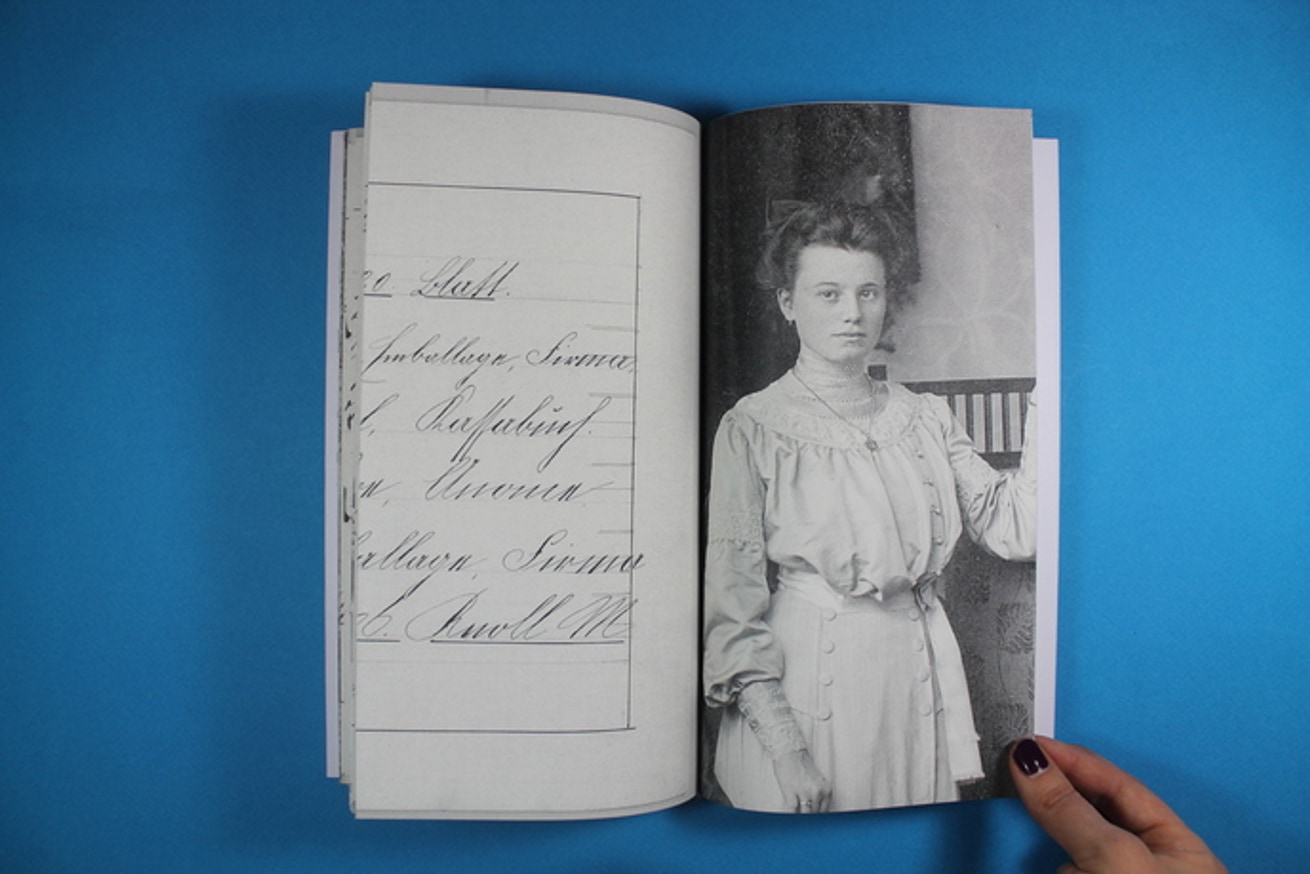 20. Blatt.
Emballage, Firma,
l, Kassabuch.
ne, Anonce
allage, Firma
Knoll M